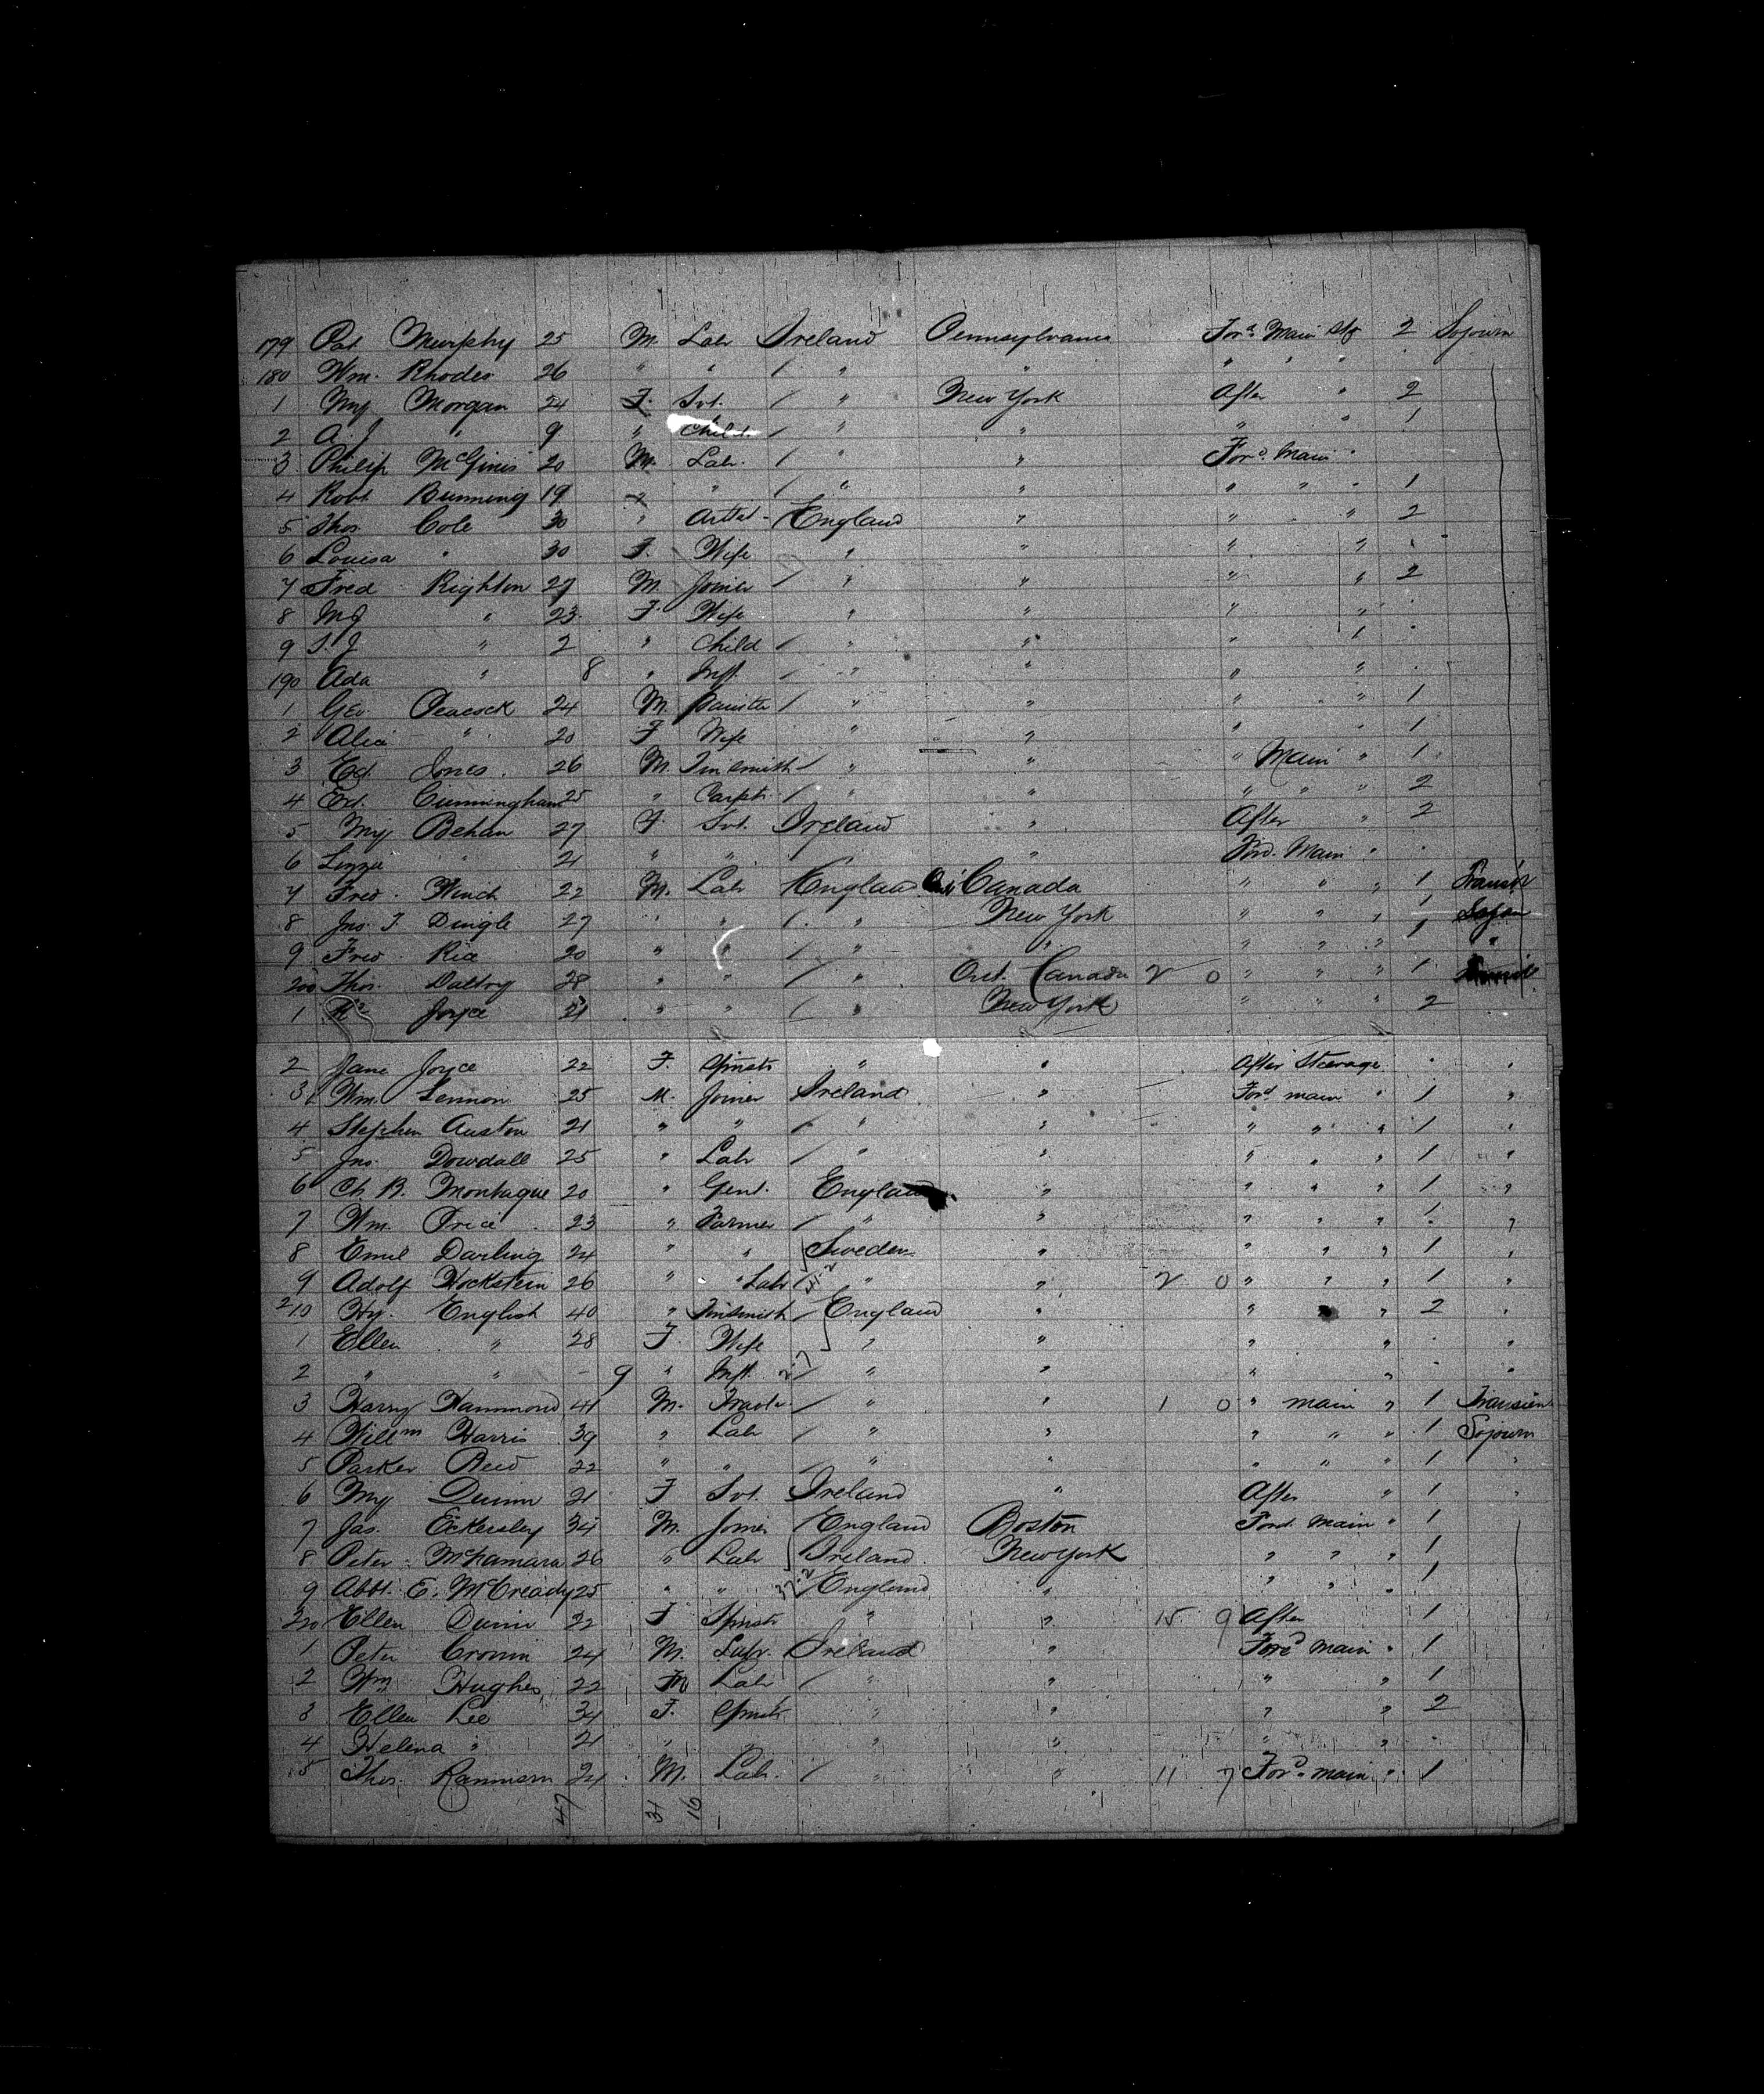 179 Pat Murphy 25 M. Labr Ireland Pennsylvania Ford Main Stg 2 Sojourn
180 Wm. Rhodes 26 " " / " " " " " "
1 My Morgan 24 F. Svt. / " New York After " 2
2 A. J " 9 " Child / " " " " 1
3 Philip McGinis 20 M. Labr. / " " Ford. Main "
4 Robt Bunning 19 " / " " " " " 1
5 Thos. Cole 30 " - England " " " 2
6 Louisa " 30 F. Wife " " " "
7 Fred Righton 27 M. Joiner / " " " " 2
8 " 23 F. Wife " " " "
9 " 2 " Child / " " "
190 Ada " 8 " Inft. / " " " "
1 Geo Peacock 24 M. Painter / " " " " 1
2 Alice " 20 F Wife " " " " 1
3 Ed. Jones. 26 M. Tinsmith / " " " Main " 1
4 Ed. Cunningham 25 " Carptr. / " " " " " 2
5 My Behan 27 F. Svt. Ireland " After " 2
6 Lizzie " 21 " " " Ford. Main "
7 Fred. Winch 22 M. Labr / England Canada " " " 1 Transit
8 Jno. T. Dingle 27 " " / " New York " " " 1
9 Fred Rice 20 " " / " " " " " 1 "
200 Thos. Daltry 28 " " / " Canada 2 0 " " " 1
1 Joyce 21 " " / " New York " " " 2
2 Jane Joyce 22 F. Spinstr " " After Steerage "
3 Wm. Lennon 25 M. Joiner Ireland " Ford main " 1 "
4 Stephen Auston 21 " " / " " " " " 1 "
5 Jno. Dowdall 25 " Labr / " " " " " 1 "
6 Ch. B. Montague 20 " Gent. England " " " " 1 "
7 Wm. Price 23 " Farmer / " " " " " 1 "
8 Emil Darling 24 " " / Sweden " " " " 1 "
9 Adolf Hockstein 26 " " Labr / " " 2 0 " " " 1 "
210 Hy. English 40 " Tinsmith / England " " " " 2 "
1 Ellen " 28 F. Wife " " " " "
2 " " - 9 " Inft. / " " " " "
3 Harry Hammond 41 M. / " " 1 0 " main " 1 Transient
4 Willm Harris 39 " Labr / " " " " " 1 Sojourn
5 Parker Reed 22 " " / " " " " " 1 "
6 My Dunn 21 F Svt. Ireland " After " 1 "
7 Jas. Eckersley 34 M. Joiner / England Boston Ford. Main " 1
8 Peter McNamara 26 " Labr / Ireland. New York " " " 1
9 E. McCready 25 " " / England " " " " 1
220 Ellen Dunn 22 F Spinstr " " 15 9 After 1
1 Peter Cronin 24 M. Ireland " Ford main " 1
2 Wm Hughes 22 M Labr / " " " " 1
3 Ellen Lee 34 F. Spinstr " " " " 2
4 Helena " 21 " " " " " "
5 Thos. 24 M. Labr. / " " 11 7 Ford. main " 1
47 31 16